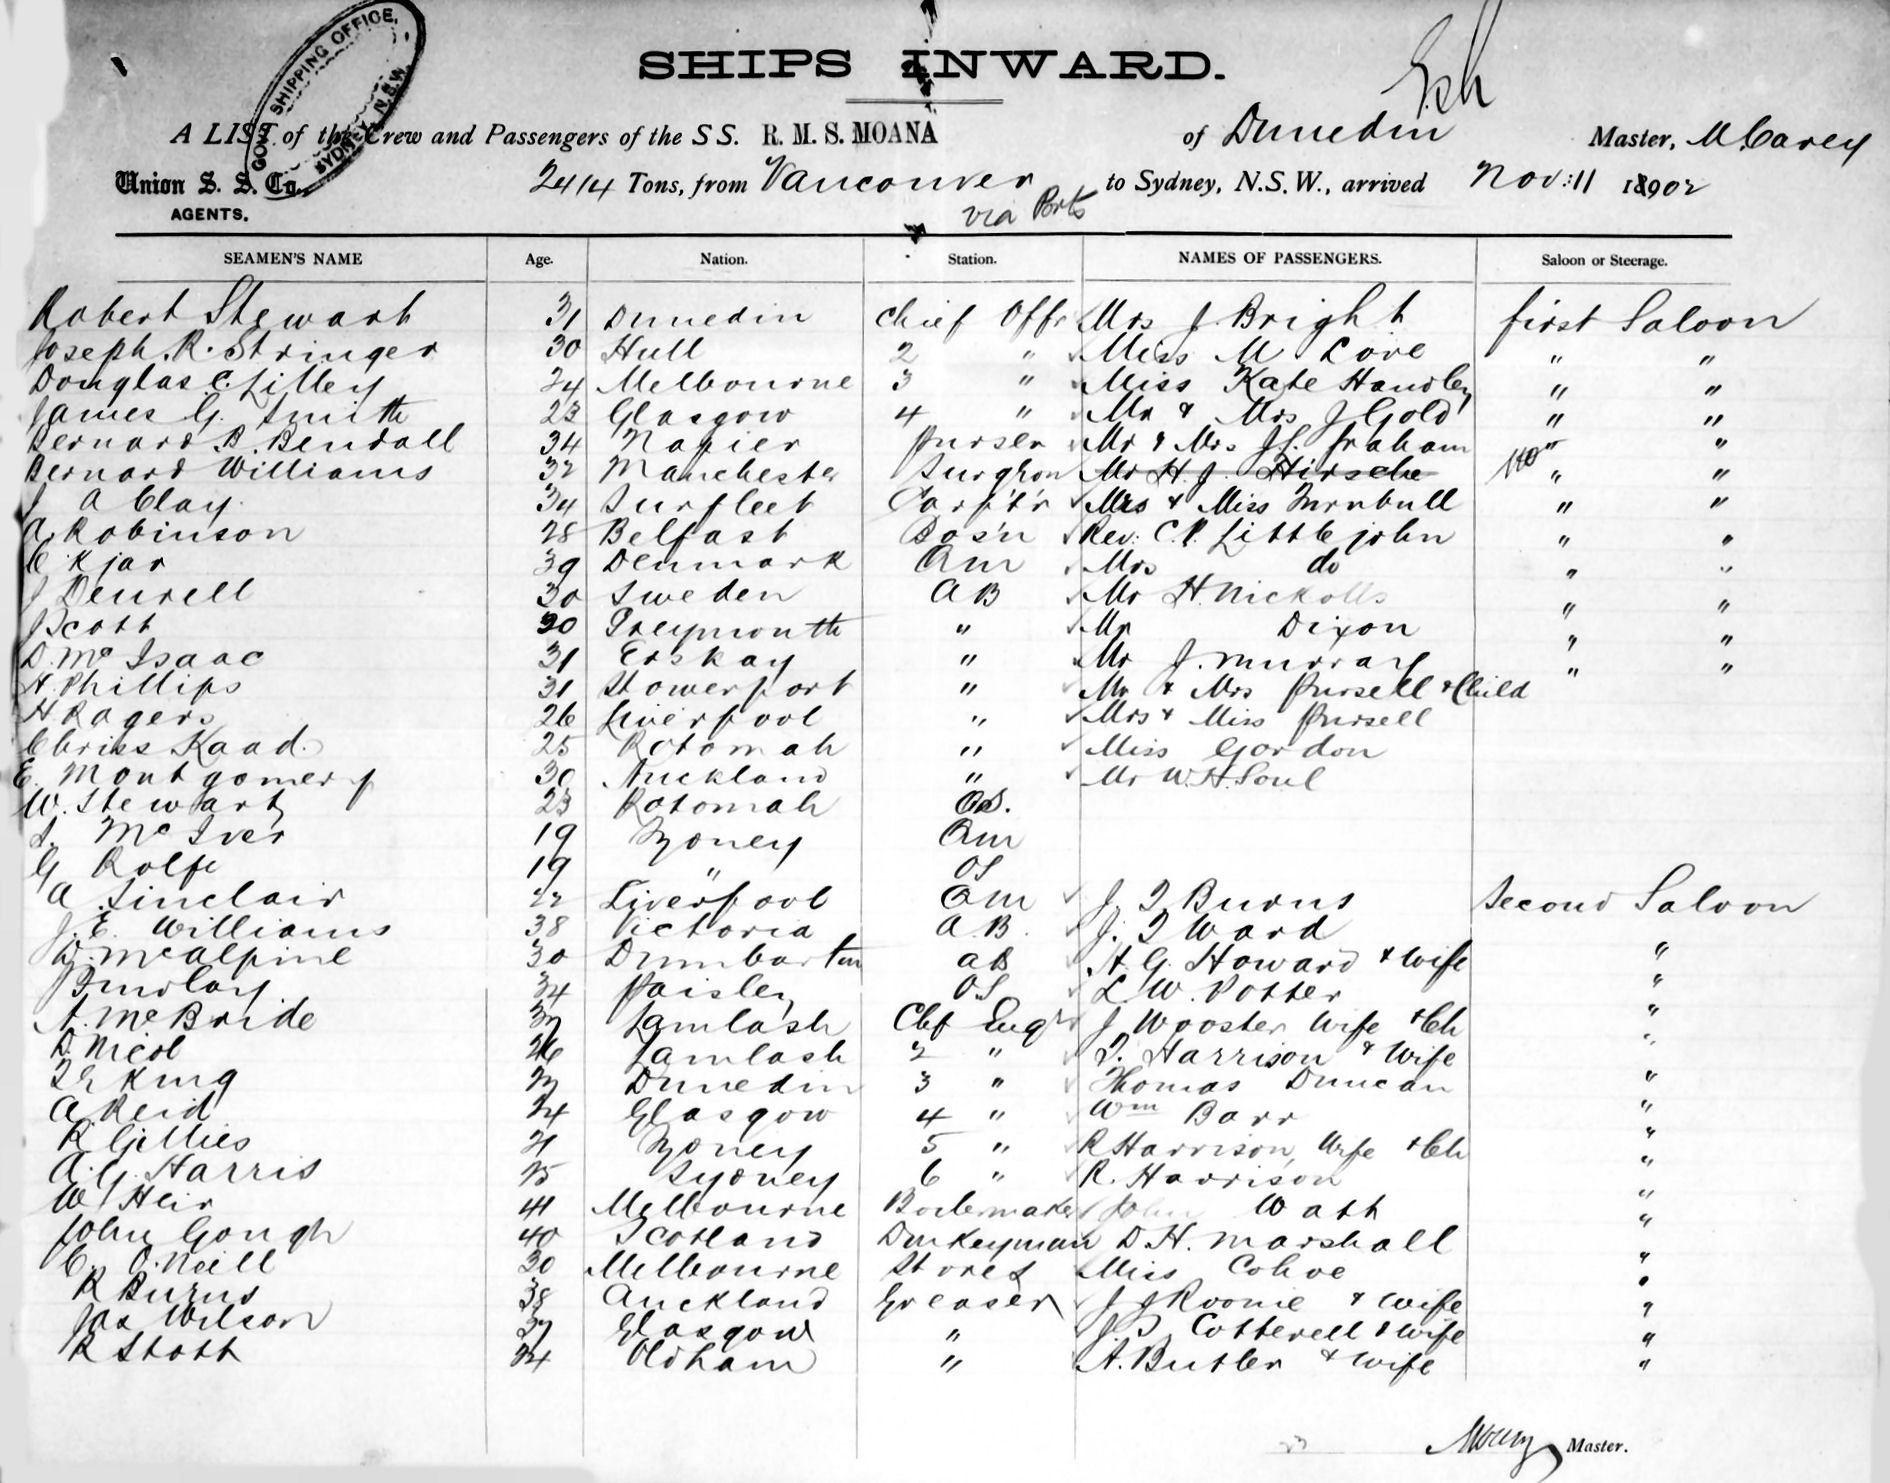 GOVT. SHIPPING OFFICE,
SYDNEY, N.S.W.
SHIPS INWARD.
A LIST of the Crew and Passengers of the S S. R. M. S. MOANA of Dunedin Master, M. Carey
Union S. S. Co., 2414 Tons, from Vancouver to Sydney, N.S.W., arrived Nov: 11 1890 2
AGENTS. via Ports
SEAMEN'S NAME Age. Nation. Station. NAMES OF PASSENGERS. Saloon or Steerage.
Robert Stewart 31 Dunedin Chief Offr Mrs J. Bright first Saloon
Joseph. R. Stringer 30 Hull 2 " Miss M Love " "
Douglas C. Lilley 24 Melbourne 3 " Miss Kate Handley " "
James G. Smith 23 Glasgow 4 " Mr & Mrs J Gold " "
Bernard B. Bendall 34 Napier Purser Mr & Mrs Graham " "
Bernard Williams 32 Manchester Surgeon Mr H. J. Hirsche " "
J A Clay. 34 Surfleet Carp't'r Mrs & Miss Turnbull " "
A. Robinson 28 Belfast Bos'n Rev: C. P. Littlejohn " "
C Kjar 39 Denmark Mrs do " "
J Deurell 30 Sweden AB Mr H. Nickolls " "
J Scott 30 Greymouth " Mr Dixon " "
D. Mc Isaac 31 Erskay " Mr J. Murray " "
H. Phillips 31 Stowerport " Mr & Mrs Pursell & Child
H Rogers 26 Liverpool " Mrs & Miss Pursell
Chriss Kaad. 25 Rotomah " Miss Gordon
E. Montgomery 30 Auckland " Mr W. H. Soul
W. Stewart 23 Rotomah O.S.
Mc Iver 19 Sydney
G Rolfe 19 " OS
A Sinclair 22 Liverpool J. T Burns Second Saloon
J. E. Williams 38 Victoria A. B. J. T Ward "
D. McAlpine 30 Dumbarton AB H. G. Howard & Wife "
J Findlay 34 Paisley OS L. W. Potter "
A. McBride Lamlash Chf Eng'r J Wooster Wife & Ch "
D. Nicol 26 Lamlash 2 " T. Harrison & Wife "
King Dunedin 3 " Thomas Duncan "
A Reid 24 Glasgow 4 " Wm Barr "
R. Gillies 21 Sydney 5 " R Harrison, Wife & Ch "
A. G. Harris 25 Sydney 6 " R. Harrison "
W Heir 41 Melbourne Boilermaker John Watt "
John Gough 40 Scotland Donkeyman D. H. Marshall "
C. O'Neill 30 Melbourne Stores Miss Cohoe "
R Burns 38 Auckland Greaser J J Roonie & Wife "
Jas Wilson Glasgow " Cotterell & Wife "
R Stott 24 Oldham " A. Butler & Wife "
Master.